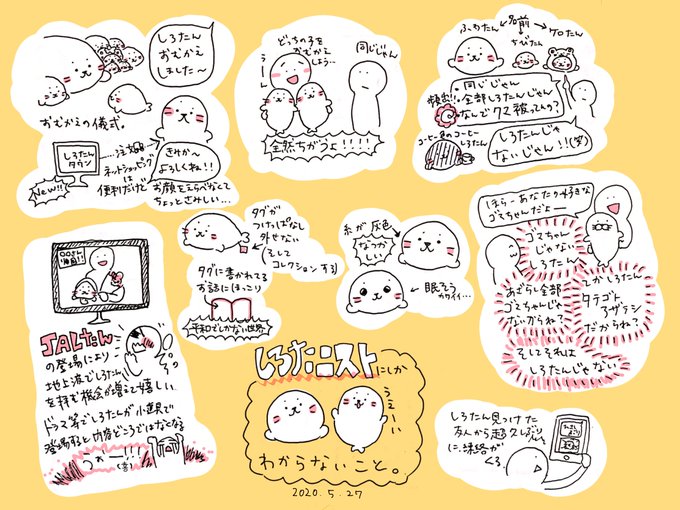 しろたん
おむかえ
しました〜
おむかえの儀式。
しろたん
タウン
New!!
ネットショッピング
は
便利だけど
きれか〜
よろしくね!!
お顔をえらべなくて
ちょっとさみしい…
どっちの子を
おむかえ
しよう…
うーん
同じじゃん
全然ちがうよ!!!!
ふわたん
名前
ちびたん
ケロたん
同じじゃん
全部しろたんじゃん
なんでクマ被ってんの?
頻出!!
コーヒー色のコーヒー
しろたん
しろたんじゃ
ないじゃん!!(笑)
タグが
つけっぱなし
外せない
そして
コレクションする
タグに書かれてる
お話にほっこり
平和でしかない世界
糸が灰色
なつか
しい
眠そう
カワイイ…
ほらーあなたの好きな
ゴマちゃんだよー
ゴマちゃん
じゃない
しろたん
あざらし全部
ゴマちゃんじゃ
ないからね?
しかしろたん
タテゴト
アザラシ
だからね?
そしてそれは
しろたんじゃない
JALたん
の登場により
地上波でしろたん
を拝む機会が増えて嬉しい
ドラマ等でしろたんが小道具で
登場すると内容どころではなくなる
うわー!!!(喜)
しろたニストにしか
うえーい
わからないこと。
2020.5.27
しろたん見つけた
友人から超久しぶり
に連絡が
くる